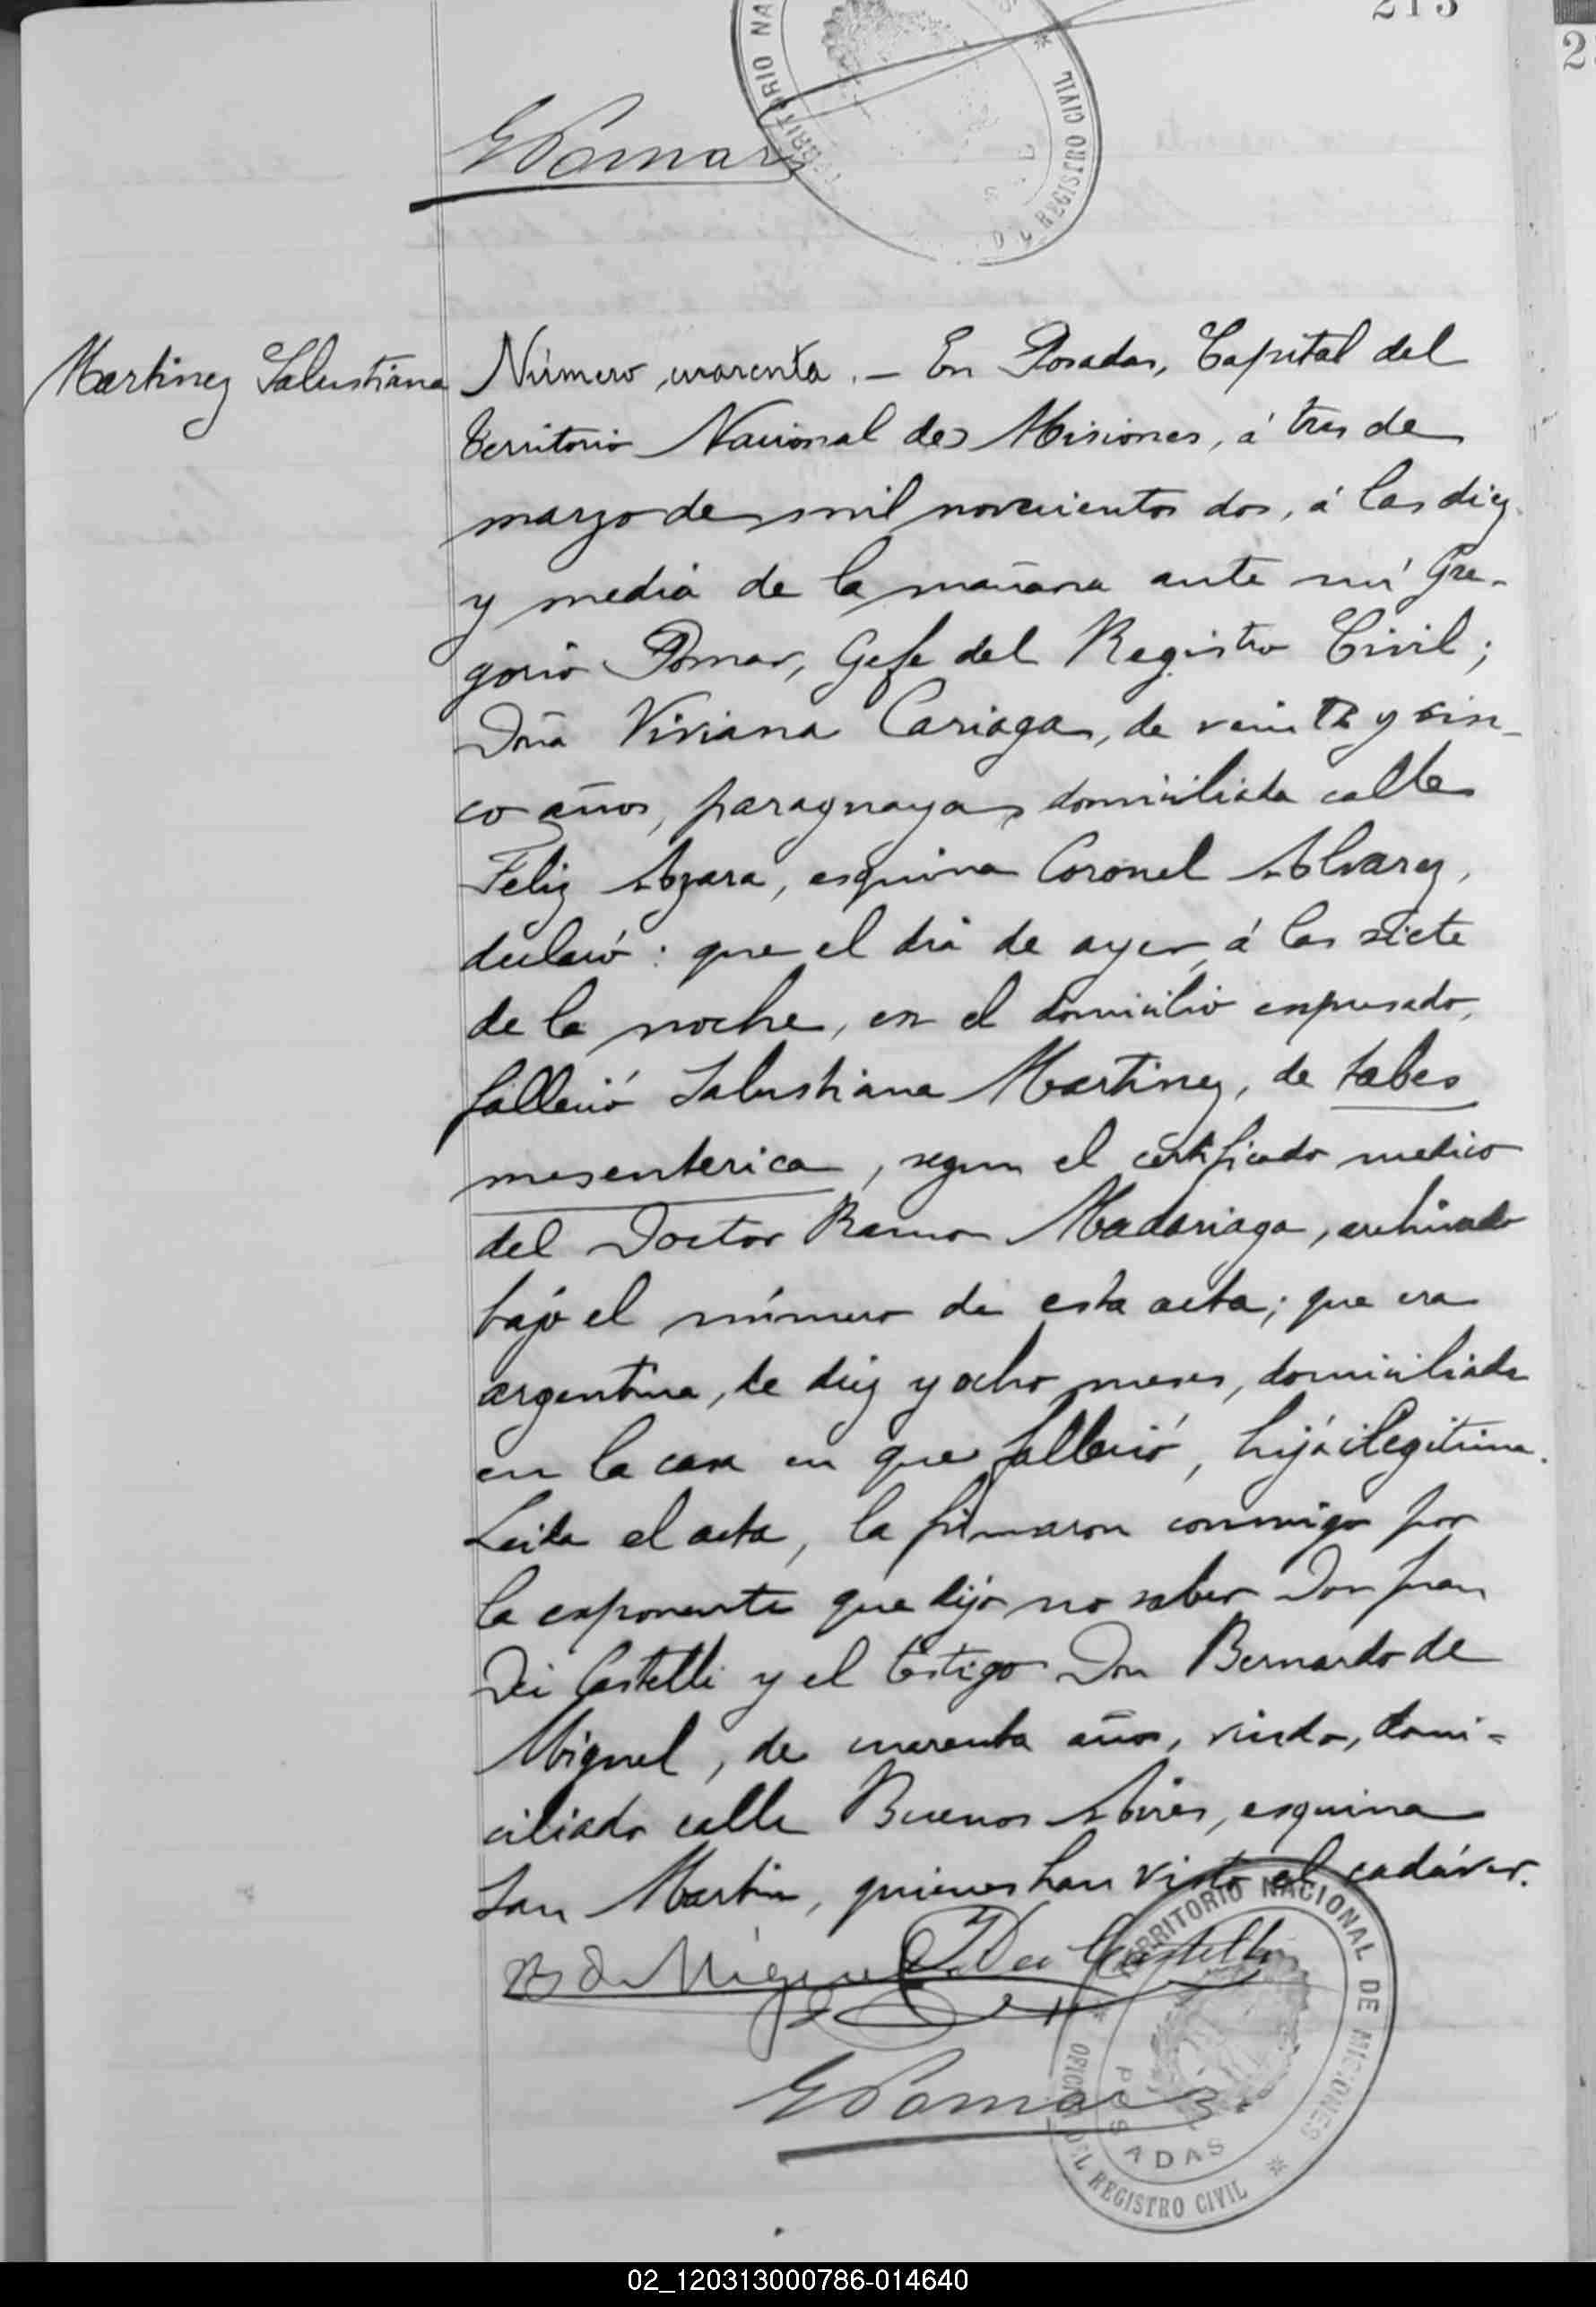 213
TERRITORIO NA
DEL REGISTRO CIVIL
GPomar
Martinez Salustiana
Número cuarenta. — En Posadas, Capital del
territorio Nacional de Misiones, á tres de
marzo de mil novecientos dos, á las diez
y media de la mañana ante mí Gre-
gorio Pomar, Gefe del Registro Civil;
Doña Viviana Cariaga, de veinte y cin-
co años, paraguaya, domiciliada calle
Feliz Azara, esquina Coronel Alvarez,
declaró: que el dia de ayer, á las siete
de la noche, en el domicilio espresado,
falleció Salustiana Martinez, de tabes
mesenterica, segun el certificado medico
del Doctor Ramon Madariaga, archivado
bajo el número de esta acta; que era
argentina, de diez y ocho meses, domiciliada
en la casa en que falleció, hija ilegitima.
Leida el acta, la firmaron conmigo por
la exponente que dijo no saber Don Juan
Dei Castelli y el testigo Don Bernardo de
Miguel, de cuarenta años, viudo, domi-
ciliado calle Buenos Aires, esquina
San Martin, quienes han visto el cadáver.
B de Miguel
J. Dei Castelli
GPomar
TERRITORIO NACIONAL DE MICIONES
OFICINA DEL REGISTRO CIVIL
POSADAS
02_120313000786-014640